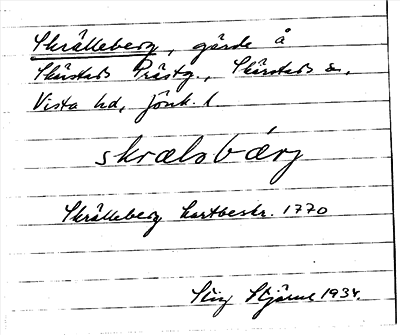 Skrälleberg, gärde å
Skärstads Prästg., Skärstads sn,
Vista hd, Jönk. l
skrælsbærj
Skrälleberg kartbeskr. 1770
Stig Stjärne 1934.